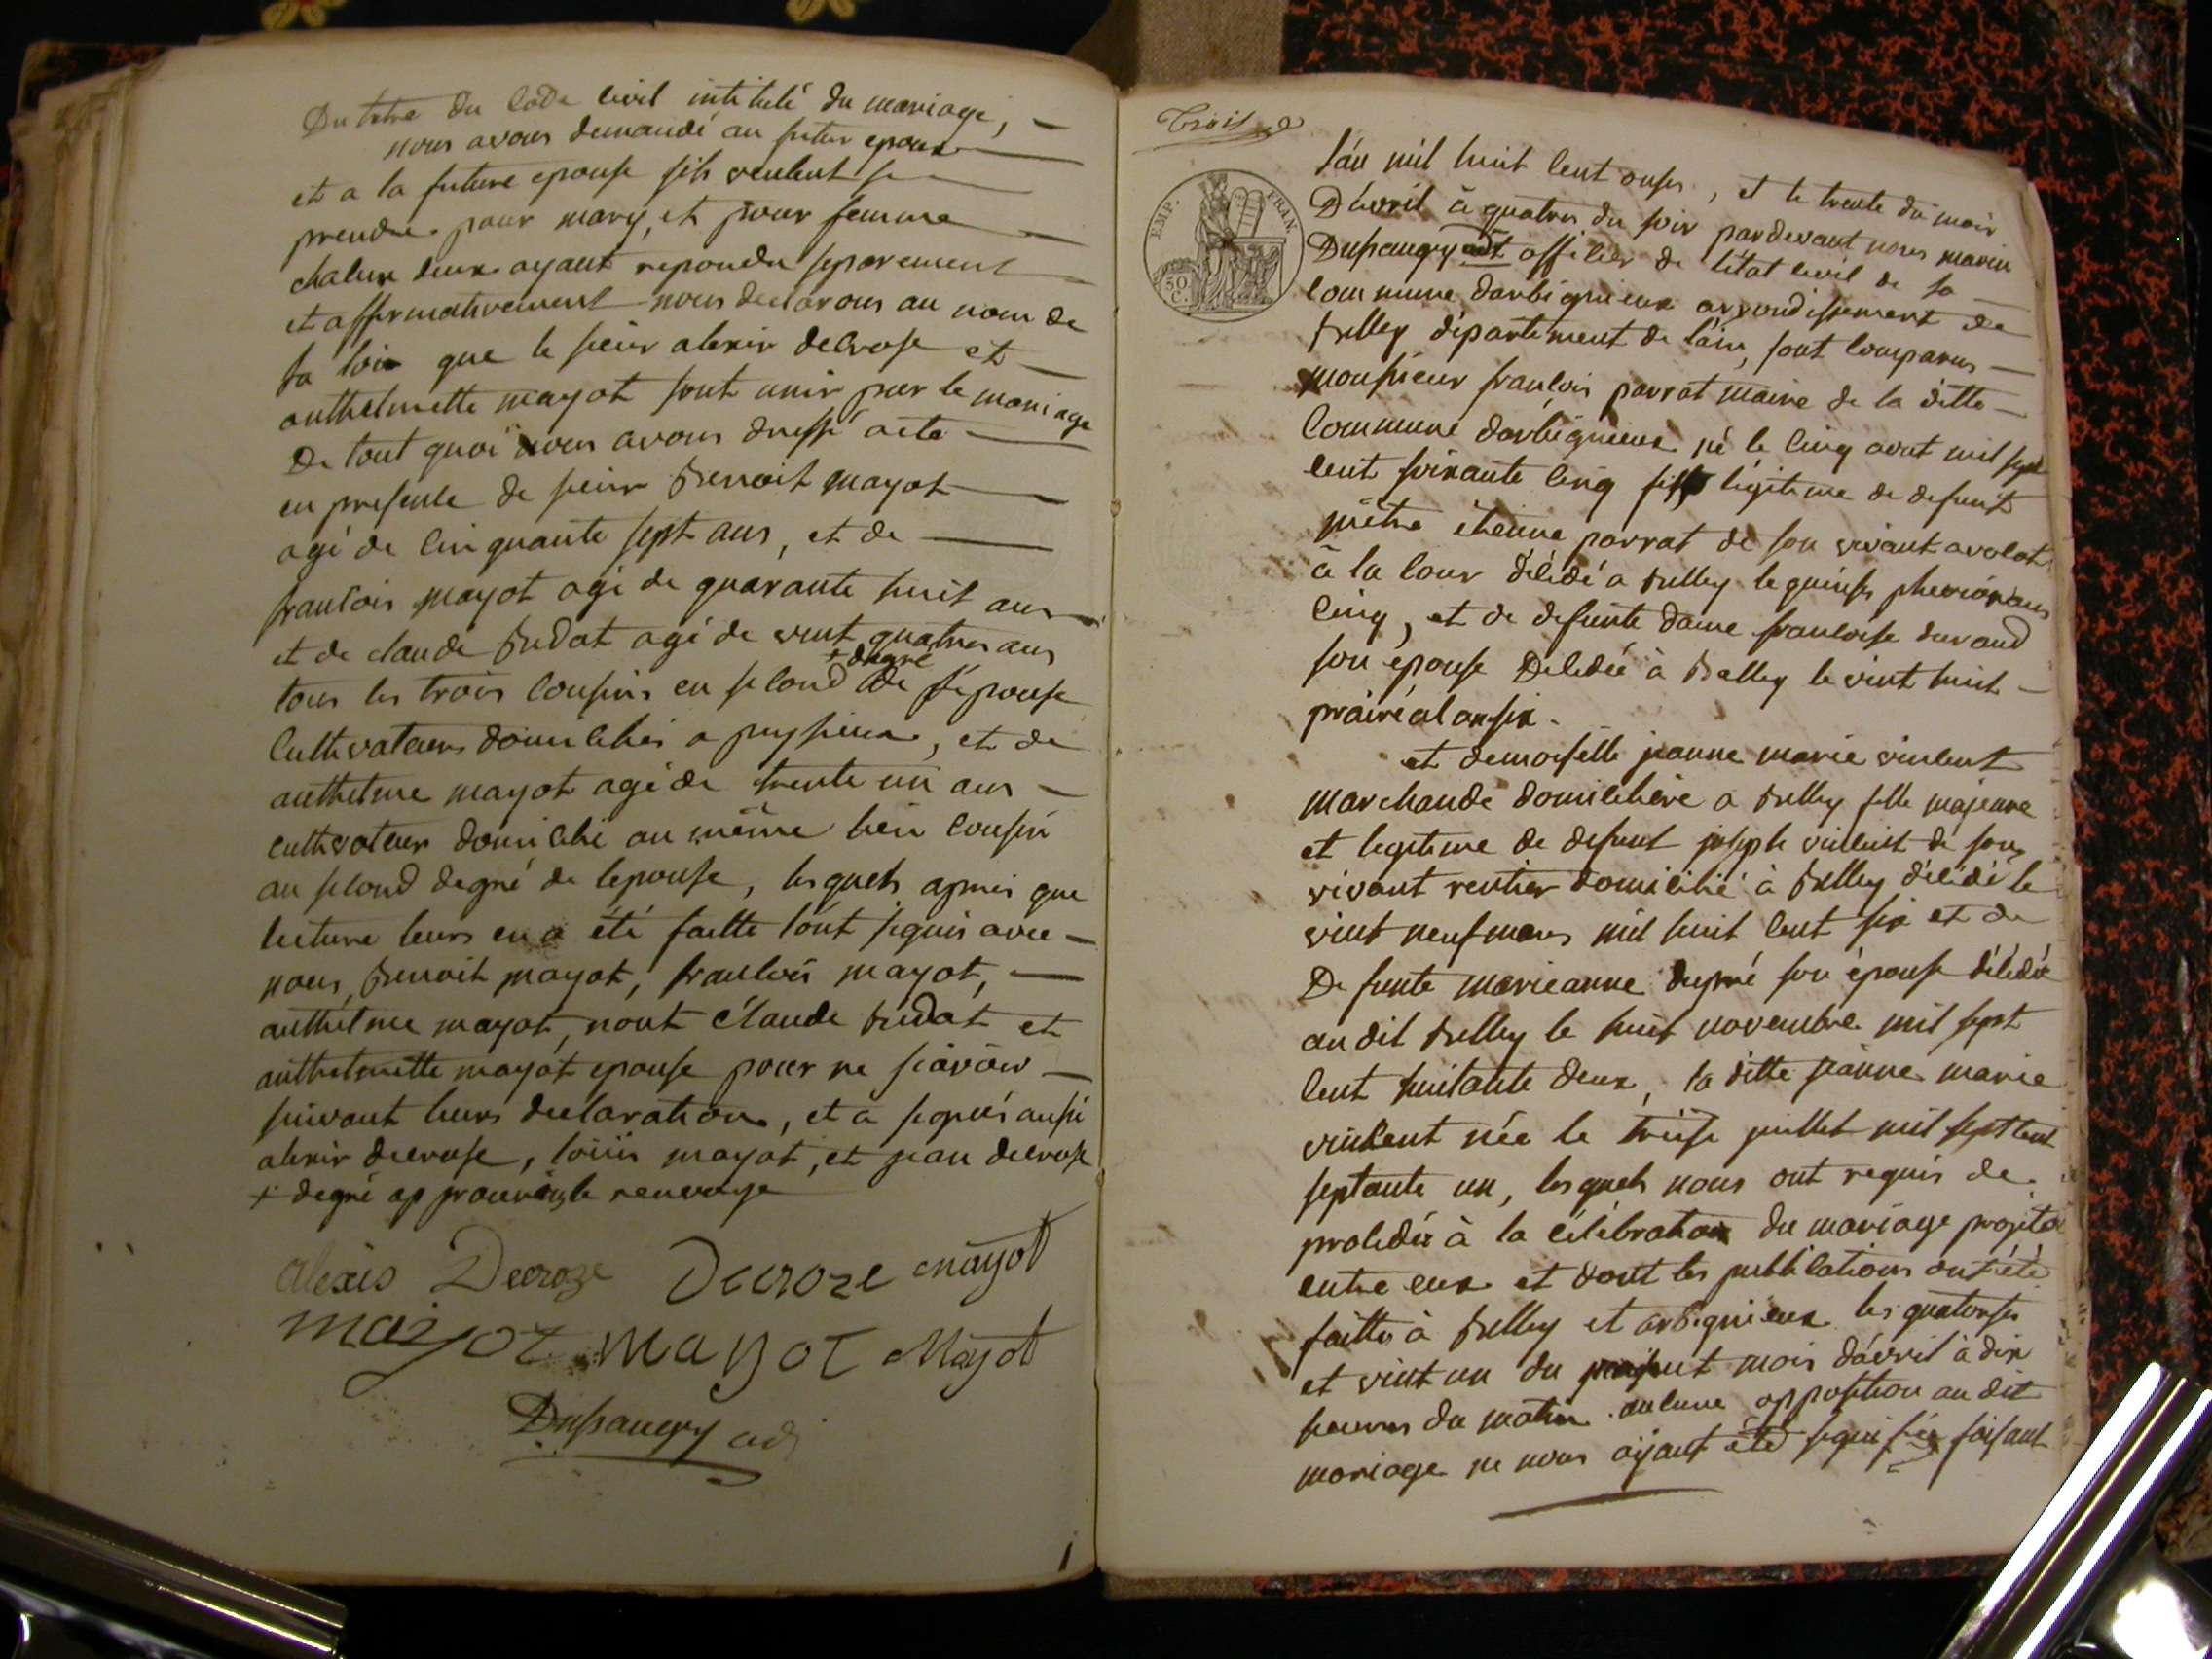 Du titre du Code Civil intitulé du mariage,
nous avons demandé au futur epoux
et a la future epouse sils veulent se
prendre pour mary, et pour femme
chacun deux ayant repondu separement
et affirmativement nous declarons au nom de
la loix que le sieur alexis decrose et
anthelmette mayot sont unis par le mariage
De tout quoi nous avons dressé acte
en presence de sieur Benoit mayot
agé de Cinquante sept ans, et de
francois mayot agé de quarante huit ans
et de claude Bidat agé de vint quatres ans
+ degré
tous les trois Cousins en second de l'épouse
Cultivateurs domicihés a peyssieux, et de
anthelme mayot agé de trente un ans
cultivateur domicihé au même lieu Cousin
au second degré de lepouse, lesquels apres que
lecture leurs en a été faitte l'ont signés avec
nous, Benoit mayot, francois mayot,
anthelme mayot, nont Claude Bidat et
anthelmette mayot epouse pour ne sçavoir
suivant leurs declaration, et a signés aussi
alexis decrose, loüis mayot, et jean decrose
+ degré approuvons le renvoye
alexis Decroze Decroze mayot
mayot mayot Mayot
Dupaugry adj
Trois
EMP. FRAN.
50 C.
l'an mil huit Cent onses, et le trente du mois
D'avril à quatres du soir pardevant nous marin
Dupaugry adt officier de l'état civil de la
Commune darbignieux arrondissement de
Belley département de l'ain, sont Comparus
monsieur françois parrat maire de la ditte
Commune darbignieux né le Cinq aout mil sept
Cent soixante Cinq fils légitime de defunt
mètre étienne parrat de son vivant avocat
à la Cour décédé a Belley le quinse pluviose an
Cinq, et de defunte dame francoise durand
son épouse Décédée à Belley le vint huit
prairéal an six.
et demoiselle jeanne marie vincent
marchande domicihére a Belley fille majeure
et legitime de defunt joseph vincent de son
vivant rentier domicihé à Belley décédé le
vint neuf mars mil huit Cent six et de
Defunte marieanne dupré son épouse décédée
au dit Belley le huit novembre mil sept
Cent huitante deux, la ditte jeanne marie
vincent née le treise juillet mil sept Cent
septante un, lesquels nous ont requis de
proceder à la célébration du mariage projeté
entre eux et dont les publications ont été
faittes à Belley et arbignieux les quatorse
et vint un du present mois d'avril à dix
heures du matin aucune opposition au dit
mariage ne nous aÿant été signifiée faisant